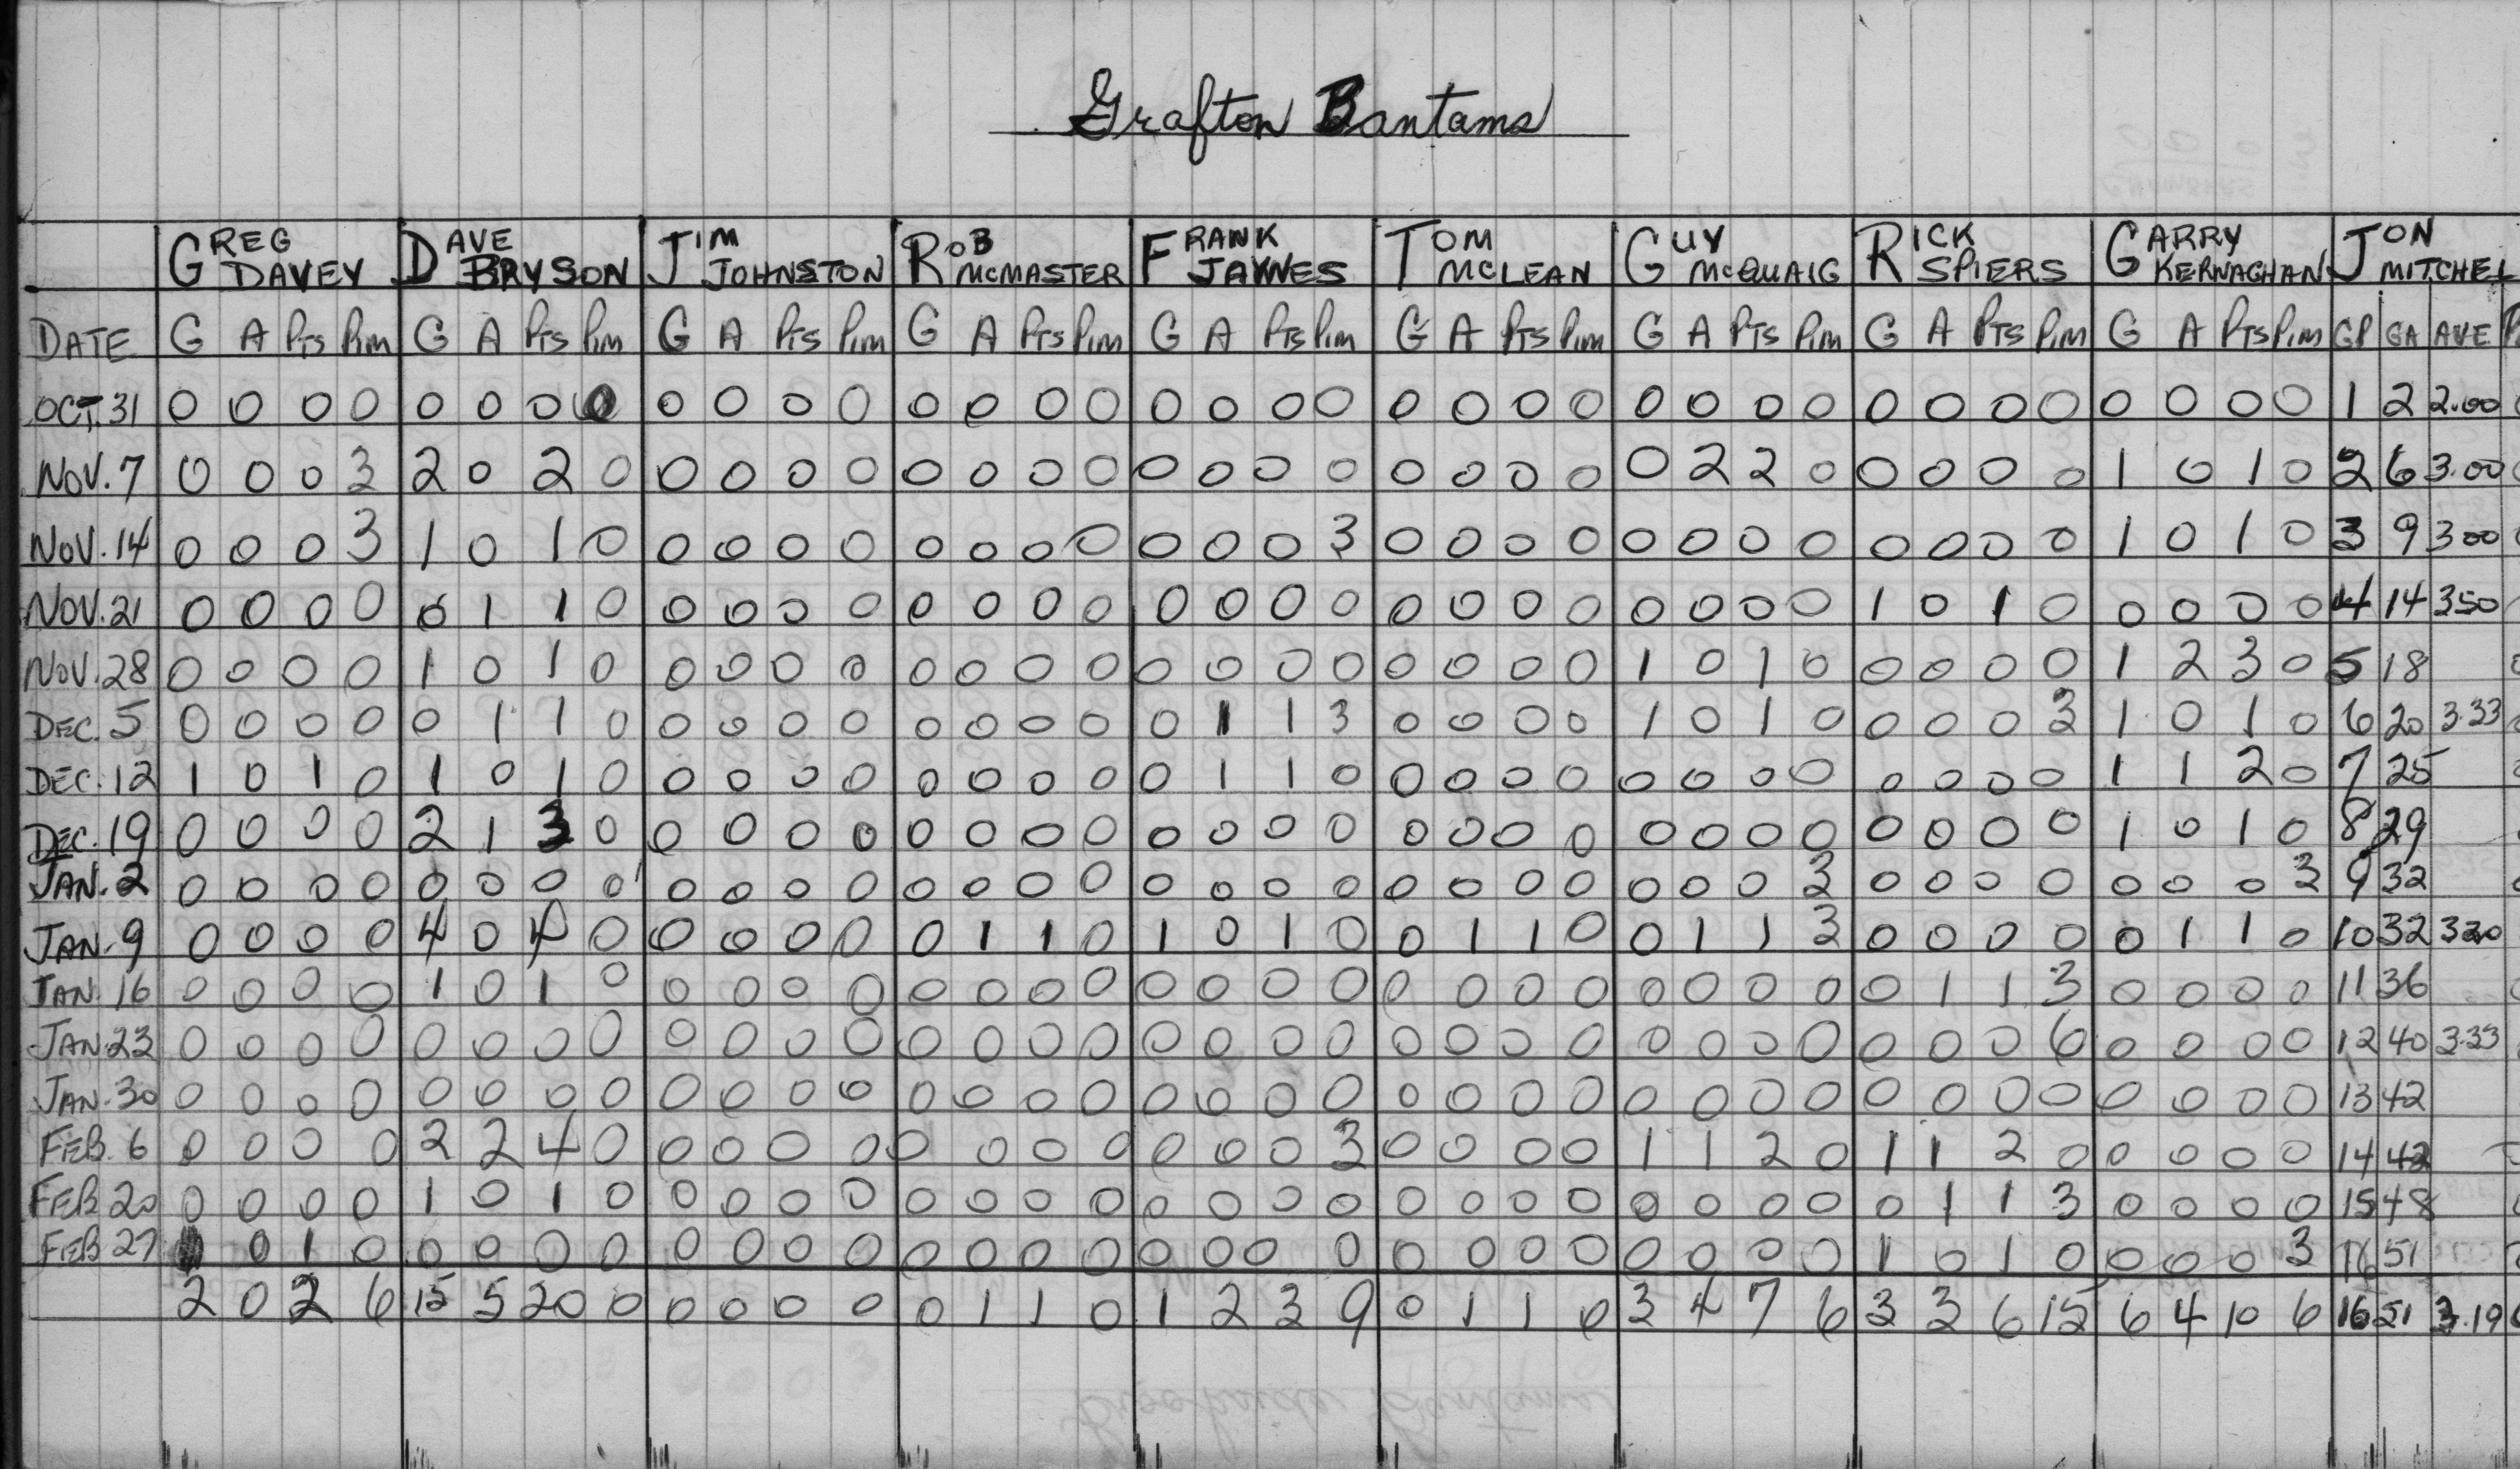 Grafton Bantams
GREG DAVEY DAVE BRYSON JIM JOHNSTON ROB MCMASTER FRANK JAYNES TOM MCLEAN GUY MCQUAIG RICK SPIERS GARRY KERNAGHAN JON MITCHEL
DATE G A PTS PIM G A PTS PIM G A PTS PIM G A PTS PIM G A PTS PIM G A PTS PIM G A PTS PIM G A PTS PIM G A PTS PIM GP GA AVE
OCT. 31 0 0 0 0 0 0 0 0 0 0 0 0 0 0 0 0 0 0 0 0 0 0 0 0 0 0 0 0 0 0 0 0 0 0 0 0 1 2 2.00
NOV. 7 0 0 0 3 2 0 2 0 0 0 0 0 0 0 0 0 0 0 0 0 0 0 0 0 0 2 2 0 0 0 0 0 1 0 1 0 2 6 3.00
NOV. 14 0 0 0 3 1 0 1 0 0 0 0 0 0 0 0 0 0 0 0 3 0 0 0 0 0 0 0 0 0 0 0 0 1 0 1 0 3 9 300
NOV. 21 0 0 0 0 0 1 1 0 0 0 0 0 0 0 0 0 0 0 0 0 0 0 0 0 0 0 0 0 1 0 1 0 0 0 0 0 4 14 350
NOV. 28 0 0 0 0 1 0 1 0 0 0 0 0 0 0 0 0 0 0 0 0 0 0 0 0 1 0 1 0 0 0 0 0 1 2 3 0 5 18
DEC. 5 0 0 0 0 0 1 1 0 0 0 0 0 0 0 0 0 0 1 1 3 0 0 0 0 1 0 1 0 0 0 0 3 1 0 1 0 6 20 3.33
DEC. 12 1 0 1 0 1 0 1 0 0 0 0 0 0 0 0 0 0 1 1 0 0 0 0 0 0 0 0 0 0 0 0 0 1 1 2 0 7 25
DEC. 19 0 0 0 0 2 1 3 0 0 0 0 0 0 0 0 0 0 0 0 0 0 0 0 0 0 0 0 0 0 0 0 0 1 0 1 0 8 29
JAN. 2 0 0 0 0 0 0 0 0 0 0 0 0 0 0 0 0 0 0 0 0 0 0 0 0 0 0 0 3 0 0 0 0 0 0 0 3 9 32
JAN. 9 0 0 0 0 4 0 4 0 0 0 0 0 0 1 1 0 1 0 1 0 0 1 1 0 0 1 1 3 0 0 0 0 0 1 1 0 10 32 320
JAN. 16 0 0 0 0 1 0 1 0 0 0 0 0 0 0 0 0 0 0 0 0 0 0 0 0 0 0 0 0 0 1 1 3 0 0 0 0 11 36
JAN. 23 0 0 0 0 0 0 0 0 0 0 0 0 0 0 0 0 0 0 0 0 0 0 0 0 0 0 0 0 0 0 0 6 0 0 0 0 12 40 3.33
JAN. 30 0 0 0 0 0 0 0 0 0 0 0 0 0 0 0 0 0 0 0 0 0 0 0 0 0 0 0 0 0 0 0 0 0 0 0 0 13 42
FEB. 6 0 0 0 0 2 2 4 0 0 0 0 0 0 0 0 0 0 0 0 3 0 0 0 0 1 1 2 0 1 1 2 0 0 0 0 0 14 42
FEB 20 0 0 0 0 1 0 1 0 0 0 0 0 0 0 0 0 0 0 0 0 0 0 0 0 0 0 0 0 0 1 1 3 0 0 0 0 15 48
FEB 27 0 1 0 0 0 0 0 0 0 0 0 0 0 0 0 0 0 0 0 0 0 0 0 0 0 0 0 1 0 1 0 0 0 0 3 16 51
2 0 2 6 15 5 20 0 0 0 0 0 0 1 1 0 1 2 3 9 0 1 1 0 3 4 7 6 3 3 6 15 6 4 10 6 16 51 3.19